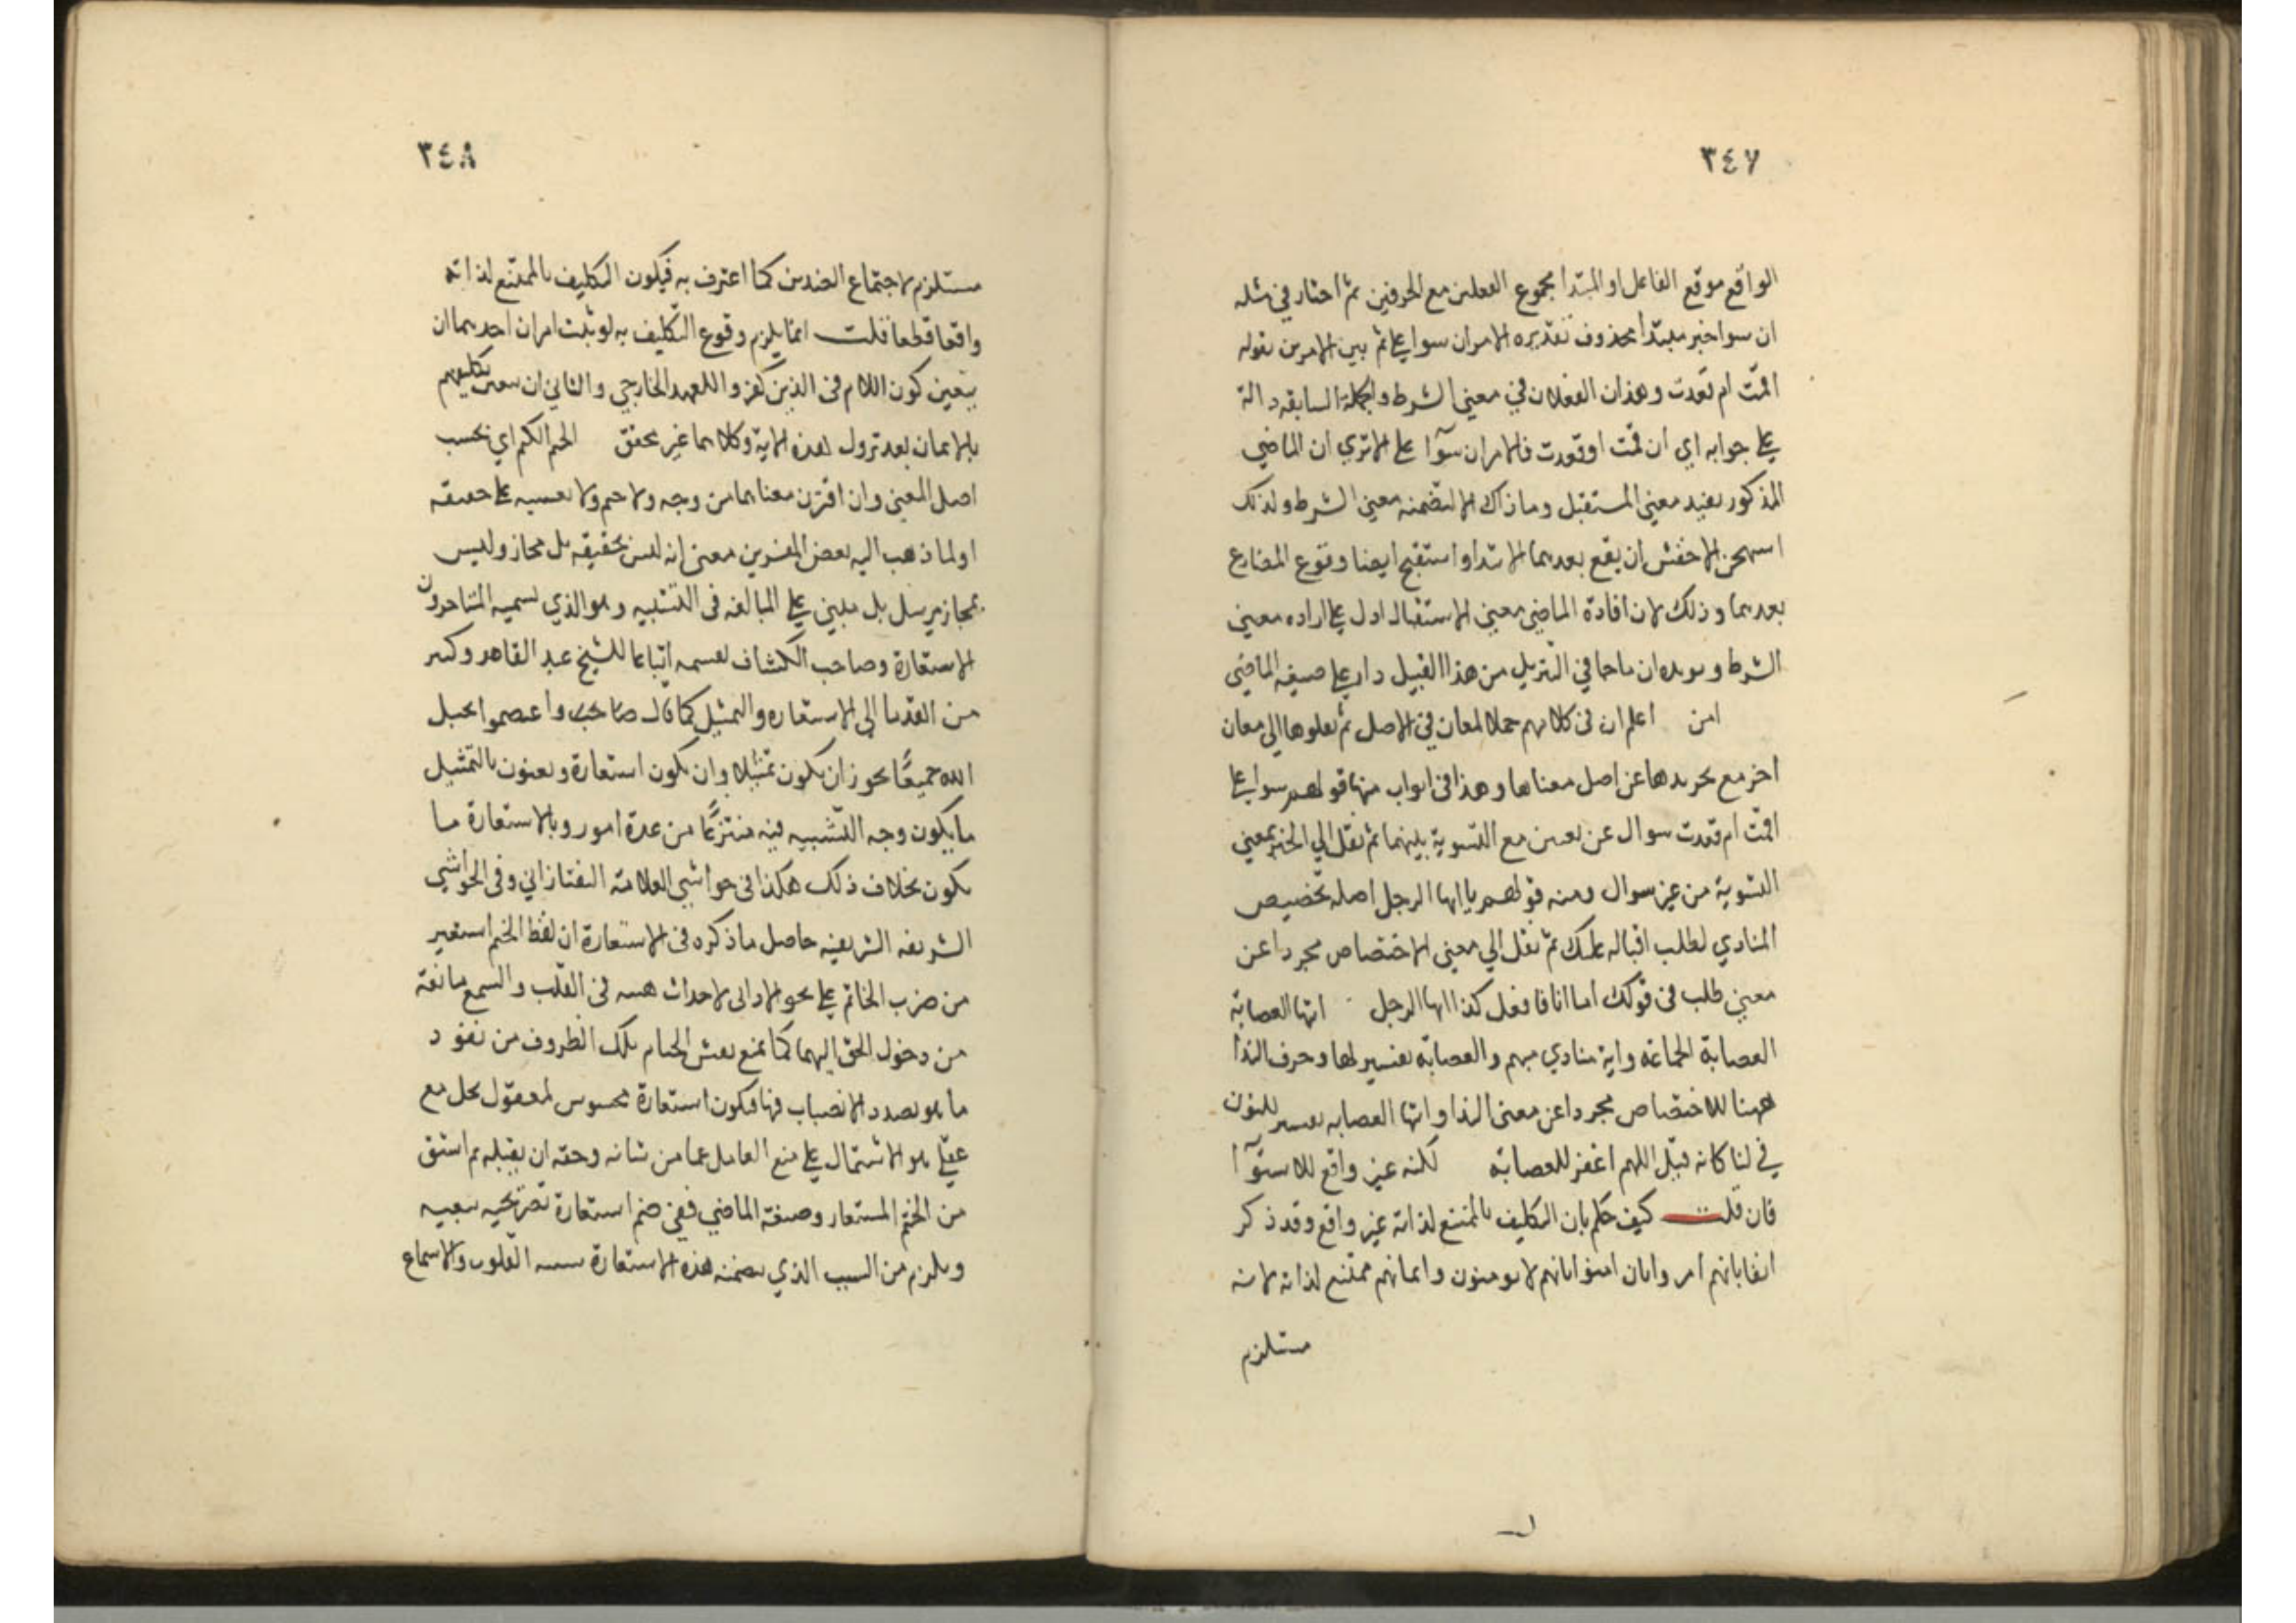 ٣٤٧
الواقع موقع الفاعل او المبتدأ مجموع الفعلين مع الحرفين ثم اختار في مثله
ان سوا خبر مبتدأ محذوف تقديره الامران سوا علي ثم بين الامرين بقوله
اقمت ام قعدت وهذان الفعلان في معني الشرط والجملة السابقه دالة
علي جوابه اي ان قمت او قعدت فالامران سوآا علي الا تري ان الماضي
المذكور يفيد معني المستقبل وما ذاك الا لتضمنه معني الشرط ولذلك
استهجن الاخفش ان يقع بعدهما الابتدا واستقبح ايضا وقوع المضارع
بعدهما وذلك لان افادة الماضي معني الاستقبال ادل علي اراده معني
الشرط ويويده ان ماجا في التنزيل من هذا القبيل دار علي صيغة الماضي
اعلم ان في كلامهم جملا لمعان في الاصل ثم نقلوها الي معان
اخر مع تجريدها عن اصل معناها وهذا في ابواب منها قولهم سوا علي
اقمت ام قعدت سوال عن تعيين مع التسوية بينهما ثم نقل الي الخبر بمعني
التسوية من غير سوال ومنه قولهم يا ايها الرجل اصله تخصيص
المنادي لطلب اقباله عليك ثم نقل الي معني الاختصاص مجردا عن
معني طلب في قولك اما انا فافعل كذا ايها الرجل ايتها العصابة
العصابة الجماعه واية منادي مبهم والعصابة تفسير لها وحرف الندا
ههنا للاختصاص مجردا عن معنى الندا وايتها العصابه تفسير للنون
في لنا كانه قيل اللهم اغفر للعصابة لكنه غير واقع للاستوآا
فان قلت كيف حكم بان التكليف بالممتنع لذاته غير واقع وقد ذكر
انفا بانهم امروا بان امنوا بانهم لا يومنون وايمانهم ممتنع لذاته لانه
مستلزم
٣٤٨
مستلزم لاجتماع الضدين كما اعترف به فيكون التكليف بالممتنع لذاته
واقعا قطعا قلت انما يلزم وقوع التكليف به لو ثبت امران احدهما ان
يتعين كون اللام في الذين كفروا للعهد الخارجي والثاني ان تعين تكليفهم
بالايمان بعد نزول هذه الاية وكلاهما غير محقق الختم الكتم اي بحسب
اصل المعني وان اقترن معناهما من وجه ولا ختم ولا تغشيه علي حقيقه
اولما ذهب اليه بعض المفسرين معني انه ليس بحقيقه بل مجاز وليس
بمجاز مرسل بل مبني علي المبالغه في التشبيه وهو الذي تسميه المتاخرون
الاستعارة وصاحب الكشاف اتباعا للشيخ عبد القاهر وكثير
من القدما الي الاستعاره والتمثيل كما قال صاحبه واعتصموا بحبل
الله جميعًا يجوز ان يكون تمثيلا وان يكون استعارة ويعنون بالتمثيل
ما يكون وجه التشبيه فيه منتزعًا من عدة امور وبالاستعارة ما
يكون بخلاف ذلك هكذا في حواشي العلامة التفتازاني وفي الحواشي
الشريفه الشريفيه حاصل ما ذكره في الاستعارة ان لفظ الختم استعير
من ضرب الخاتم علي نحو الاواني لاحداث هيئه في القلب والسمع مانعة
من دخول الحق اليهما كما يمنع نقش الختام تلك الظروف من نفوذ
ما هو بصدد الانصباب فيها فيكون استعارة محسوس لمعقول بجامع
عقلي هو الاشتمال علي منع القابل عما من شانه وحقه ان يقبله ثم اشتق
من الختم المستعار وصيغة الماضي ففي ختم استعارة تصريحيه تبعيه
ويلزم من السبب الذي تضمنه هذه الاستعارة القلوب والاسماع